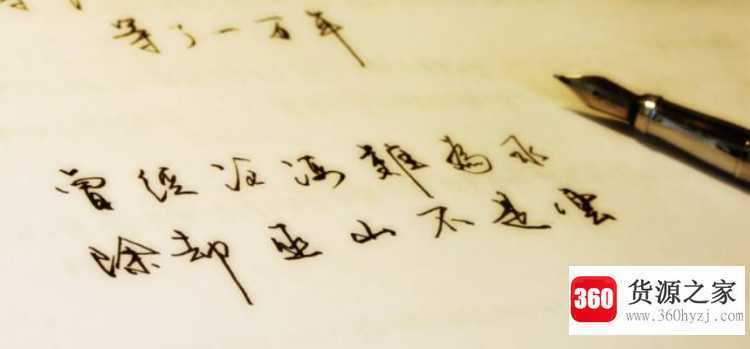 等了一百年
曾经沧海难为水
除却巫山不是云
360 货源之家
www.360hyzj.com